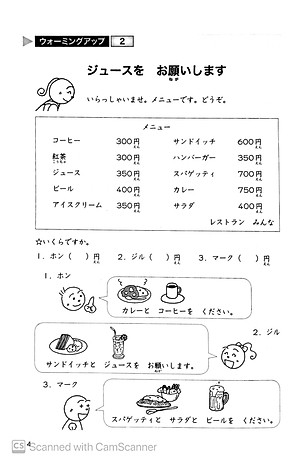 ウォーミングアップ 2
ジュースを お願いします
ねが
いらっしゃいませ。メニューです。どうぞ。
メニュー
コーヒー 300円 サンドイッチ 600円
えん えん
紅茶 300円 ハンバーガー 350円
こうちゃ えん えん
ジュース 350円 スパゲッティ 700円
えん えん
ビール 400円 カレー 750円
えん えん
アイスクリーム 350円 サラダ 400円
えん えん
レストラン みんな
☆いくらですか。
1．ホン（ ）円 2．ジル（ ）円 3．マーク（ ）円
えん えん えん
1．ホン
カレーと コーヒーを ください。
2．ジル
サンドイッチと ジュースを お願いします。
ねが
3．マーク
スパゲッティと サラダと ビールを ください。
4
CS Scanned with CamScanner